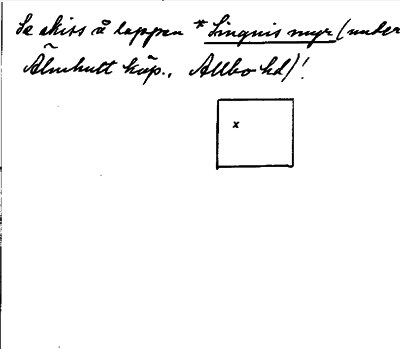 Se skiss å lappen * Lingnis myr (under
Älmhult köp., Allbo hd)!
x